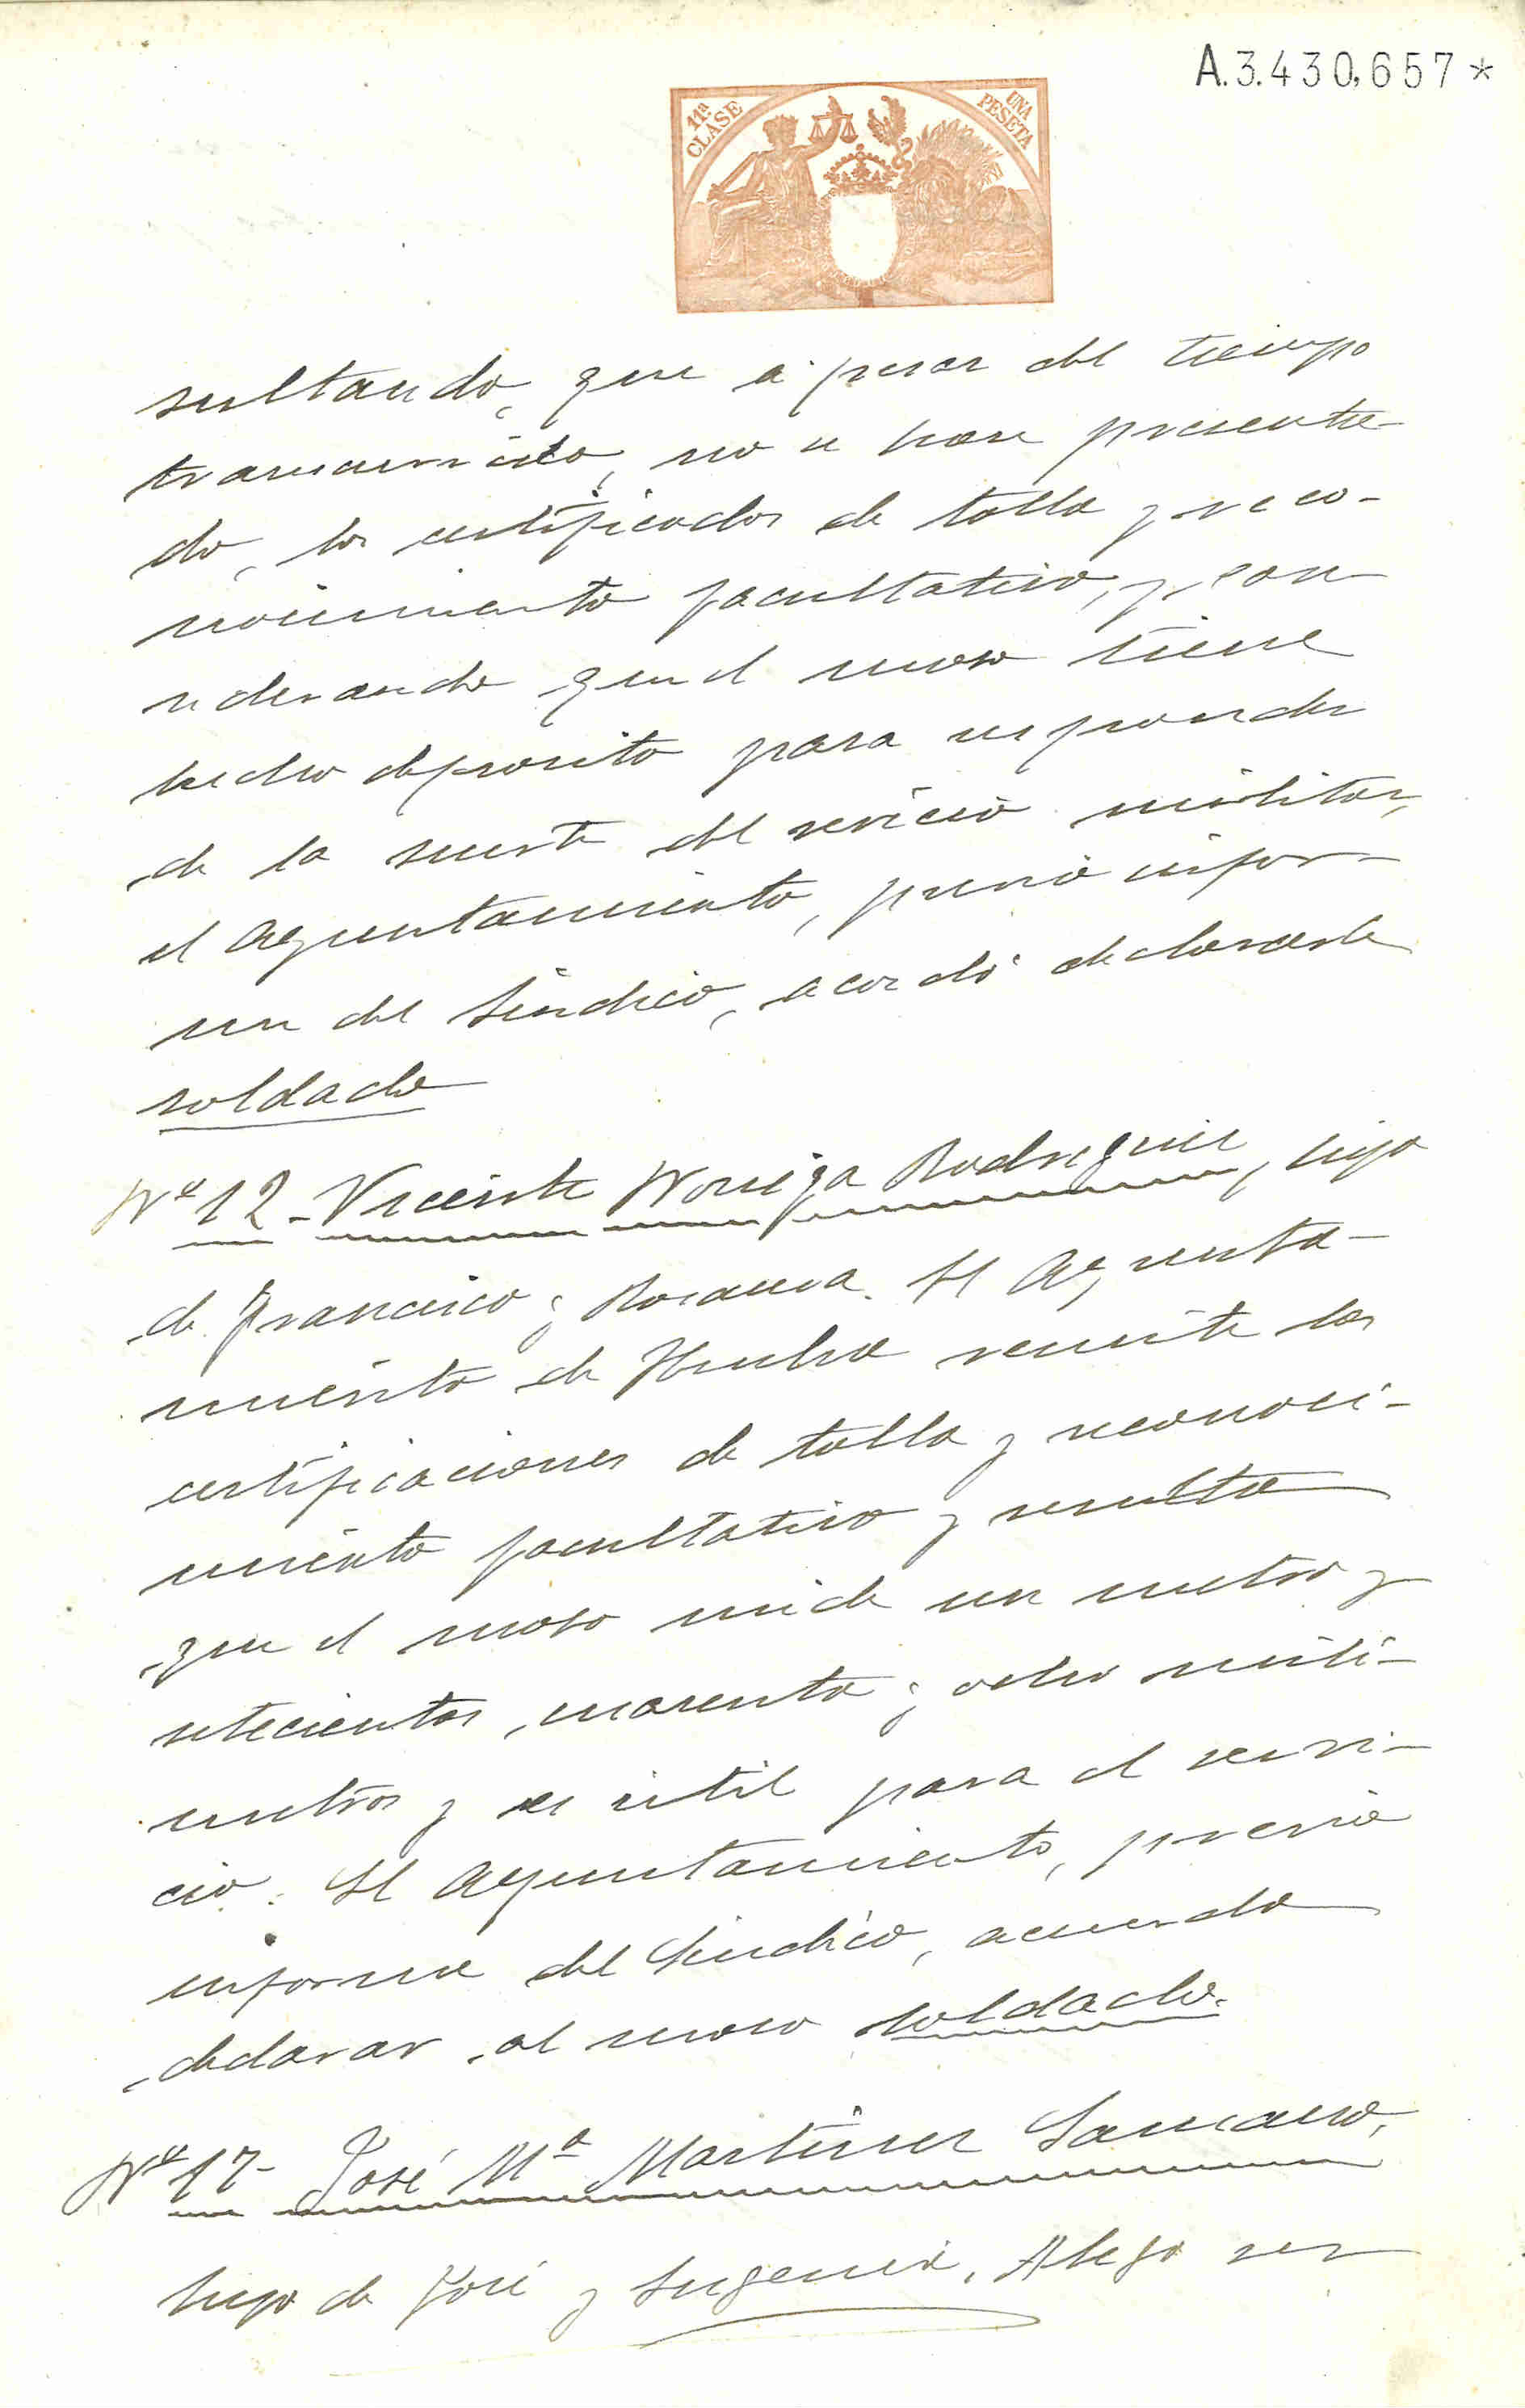 A.3.430,657*
11ª CLASE
UNA PESETA
sultando, que á pesar del tiempo
transcurrido, no se han presenta-
do, los certificados de talla y reco-
nocimiento facultativo, y con
siderando que el mozo tiene
hecho deposito para responder
de la suerte del servicio militar,
el Ayuntamiento, previo infor-
me del Sindico, acordó declararle
soldado
Nº 12 - Vicente Noriega Rodriguez, hijo
de Francisco y Rosaura. El Ayunta-
miento de Huelva remite las
certificaciones de talla y reconoci-
miento facultativo y resulta
que el mozo mide un metro y
setecientos cuarenta y ocho milí-
metros y es útil para el servi-
cio. El Ayuntamiento, previo
informe del Sindico, acuerda
declarar al mozo soldado.
Nº 17 - José Mª Martinez
hijo de José y Eugenia. Alega ser